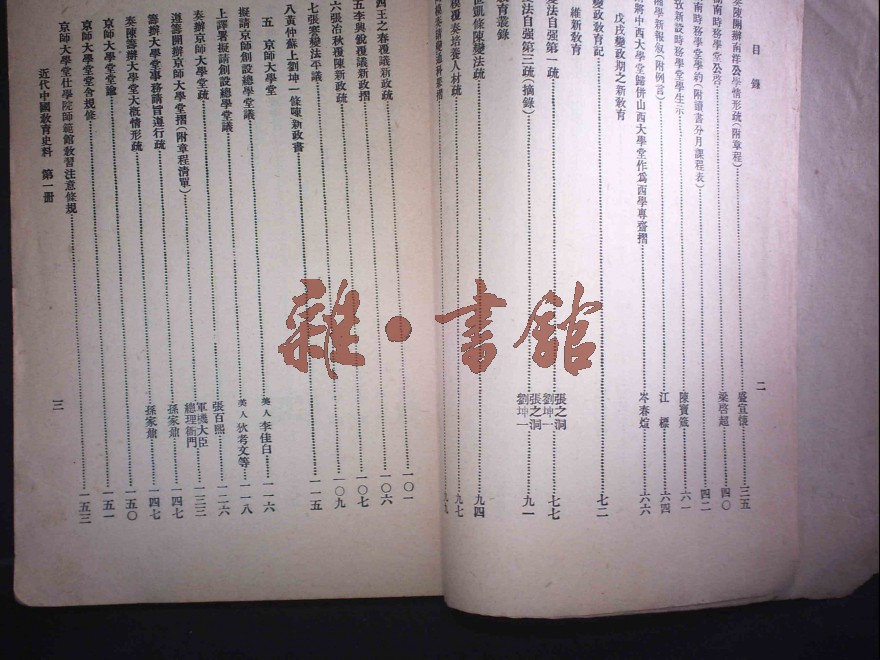 目錄
奏陳開辦南洋公學情形疏(附章程)……盛宣懷……三五
湖南時務學堂公啓……梁啓超……四〇
湖南時務學堂學約(附讀書分月課程表)……四二
招考新設時務學堂學生示……陳寶箴……六一
學新報敘(附例言)……江標……六四
將中西大學堂歸倂山西大學堂作爲西學專齋摺……岑春煊……六六
戊戌變政期之新敎育
變政敎育記……七二
維新敎育
變法自强第一疏……張之洞 劉坤一……七七
變法自强第三疏(摘錄)……張之洞 劉坤一……九一
敎育叢錄
世凱條陳變法疏……九四
模覆奏培養人材疏……九七
模奏請變通科舉摺……九九
二
四王之春覆議新政疏……一〇一
五李興銳覆議新政摺……一〇六
六張冶秋覆陳新政疏……一〇七
七張謇變法平議……一〇九
八黃仲蘇上劉坤一條陳新政書……一一五
五 京師大學堂
擬請京師創設總學堂議……美人李佳白……一一六
上譯署擬請創設總學堂議……美人狄考文等……一一八
奏辦京師大學堂疏……張百熙……一二六
遵籌開辦京師大學堂摺(附章程淸單)……軍機大臣 總理衙門……一三三
籌辦大學堂事務請旨遵行疏……孫家鼐……一四七
奏陳籌辦大學堂大槪情形疏……孫家鼐……一四七
京師大學堂堂諭……一五〇
京師大學堂堂舍規條……一五一
京師大學堂仕學院師範館敎習注意條規……一五三
近代中國敎育史料 第一册
三
雜·書館